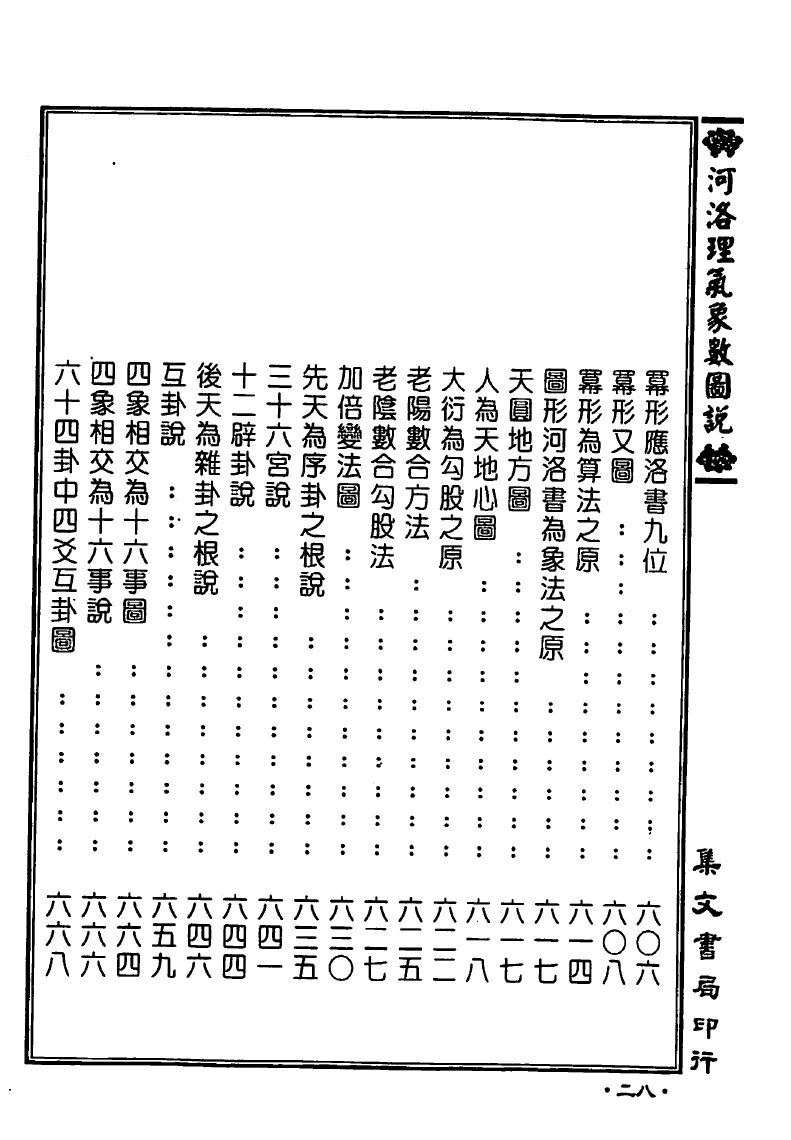 河洛理氣象數圖說
冪形應洛書九位 ：：：：：：：：： 六〇六
冪形又圖 ：：：：：：：：：：：： 六〇八
冪形為算法之原 ：：：：：：：：： 六一四
圖形河洛書為象法之原 ：：：：：： 六一七
天圓地方圖 ：：：：：：：：：：： 六一七
人為天地心圖 ：：：：：：：：：： 六一八
大衍為勾股之原 ：：：：：：：：： 六二二
老陽數合方法 ：：：：：：：：：： 六二五
老陰數合勾股法 ：：：：：：：：： 六二七
加倍變法圖 ：：：：：：：：：：： 六三〇
先天為序卦之根說 ：：：：：：：： 六三五
三十六宮說 ：：：：：：：：：：： 六四一
十二辟卦說 ：：：：：：：：：：： 六四四
後天為雜卦之根說 ：：：：：：：： 六四六
互卦說 ：：：：：：：：：：：：： 六五九
四象相交為十六事圖 ：：：：：：： 六六四
四象相交為十六事說 ：：：：：：： 六六六
六十四卦中四爻互卦圖 ：：：：：： 六六八
集文書局印行
・二八・